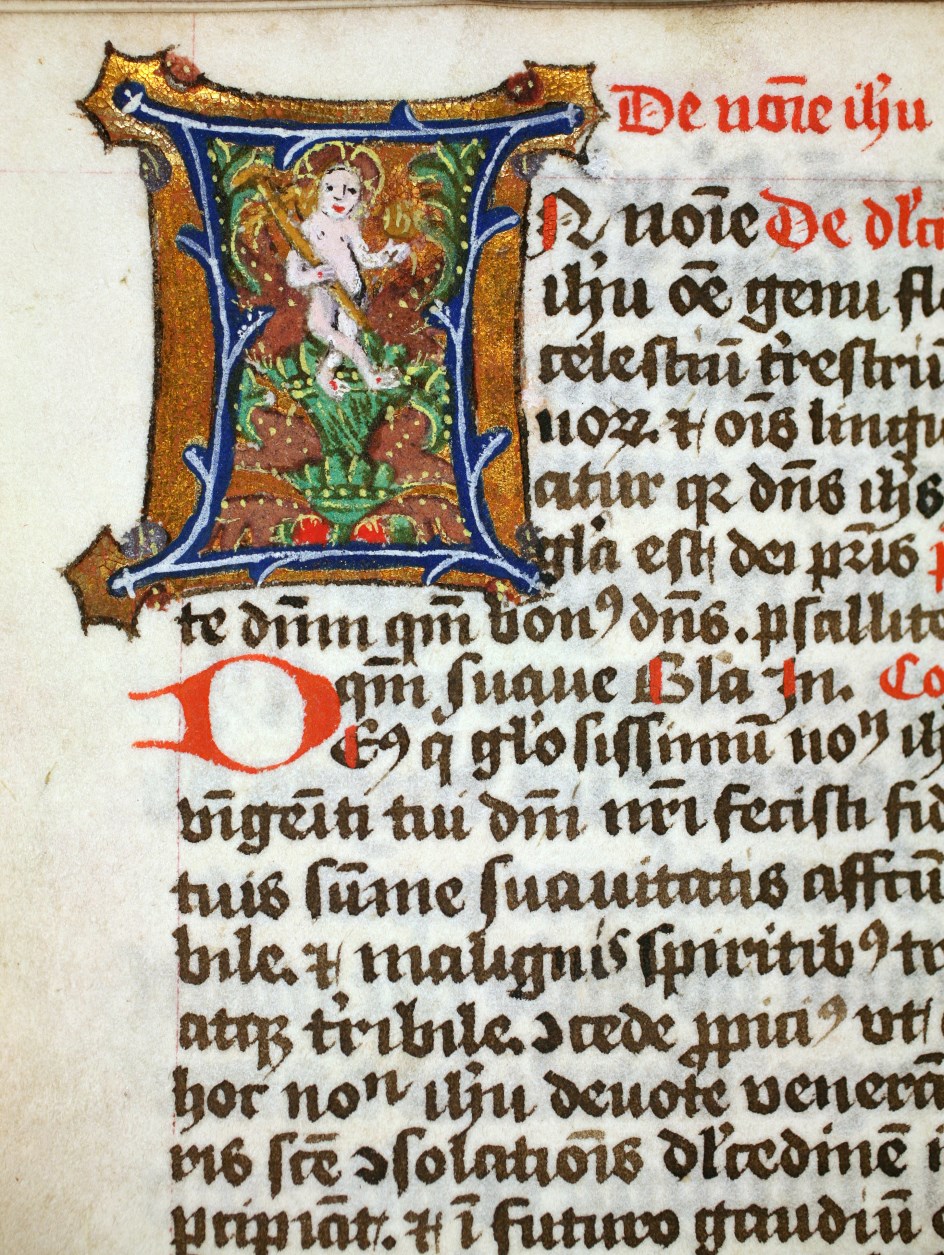 De noīe ihu
I N noīe De dl̕ce
ihu oē genu fl
celestiū t̕restriū
noꝝ. ⁊ oīs lingu
atur qꝛ dn̄s ihs
gl̕a est dei pr̄is
te dn̄m qm̄ bonꝰ dn̄s. psallite
qm̄ suaue Gl̕a In. Co
DEꝰ q gl̕osissimū noⁿ ih
vnīgeīti tui dn̄i nr̄i fecisti fid
tuis sūme suauitatis affctū
bile. ⁊ malignis spiritibꝰ tr
atqꝫ t̕ribile. ↄcede ꝓpiciꝰ vt
hoc noⁿ ihu deuote venerā
ris scē ↄsolatiōis dl̕cedinē i
ptipiāt. ⁊ ī futuro gaudiū